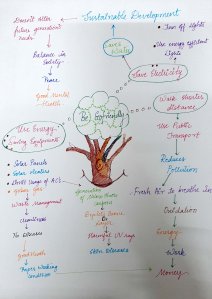 Sustainable Development
Doesn't alter
future generation
needs
Balance in
Society
Peace
Good Mental
Health
Saves
Turn off lights
Use energy efficient
lights
Save Electricity
Walk shorter
distance
Be Eco friendly
Use Energy-
Saving Equipments
Use Public
Transport
Reduces
Pollution
Solar Panels
Solar Heaters
Limit Usage of ACs
Waste Management
Cleanliness
No disease
Good Health
Proper Working
Condition
Generation of
Ozone
Harmful UV rays
Skin Diseases
Fresh Air to breathe in
Oxidation
Energy
Work
Money